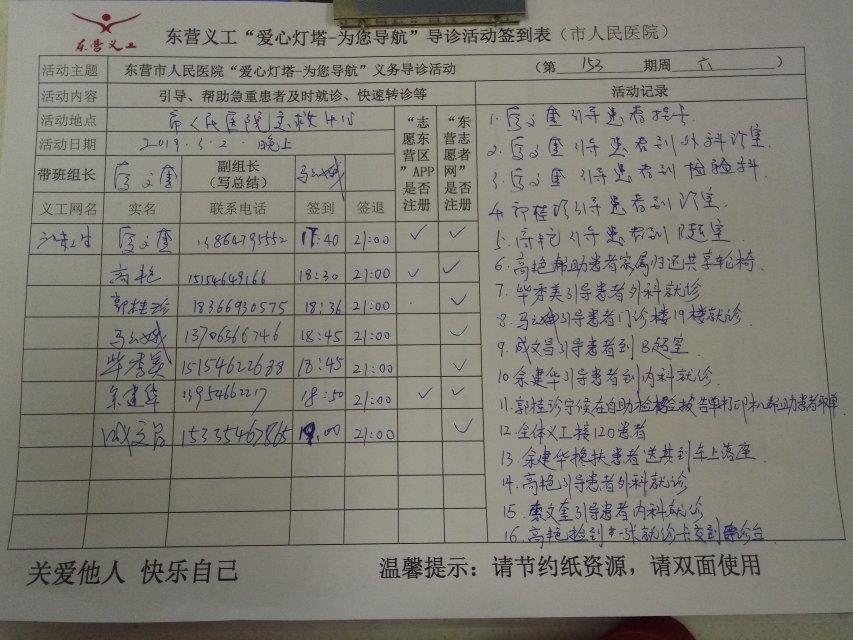 东营义工
东营义工“爱心灯塔-为您导航”导诊活动签到表(市人民医院)
活动主题 东营市人民医院“爱心灯塔-为您导航”义务导诊活动 (第 153 期周 六 )
活动内容 引导、帮助急重患者及时就诊、快速转诊等
活动地点 市人民医院急救中心
活动日期 2019.3.2.晚上
带班组长 副组长(写总结)
“志愿东营区”APP是否注册
“东营志愿者网”是否注册
义工网名 实名 联系电话 签到 签退
13864795552 17:40 21:00 ✓ ✓
高艳 15154649166 18:30 21:00 ✓ ✓
郭桂珍 18366930575 18:36 21:00 ✓
13706366746 18:45 21:00 ✓
毕秀美 15154622688 18:45 21:00 ✓
余建华 13954662217 18:50 21:00 ✓ ✓
成文昌 15335467865 19:00 21:00 ✓
活动记录
1. 文奎引导患者挂号.
2. 文奎引导患者到外科诊室.
3. 文奎引导患者到检验科.
4. 郭桂珍引导患者到诊室.
5. 高艳引导患者到B超室.
6. 高艳帮助患者家属归还共享轮椅.
7. 毕秀美引导患者外科就诊
8. 引导患者门诊楼19楼就诊.
9. 成文昌引导患者到B超室.
10. 余建华引导患者到内科就诊.
11. 郭桂珍守候在自助检验报告单打印机帮助患者取单
12. 全体义工接120患者
13. 余建华搀扶患者送其到车上落座.
14. 高艳引导患者外科就诊
15. 文奎引导患者内科就诊
16. 高艳捡到一张就诊卡交到导诊台
关爱他人 快乐自己
温馨提示:请节约纸资源,请双面使用